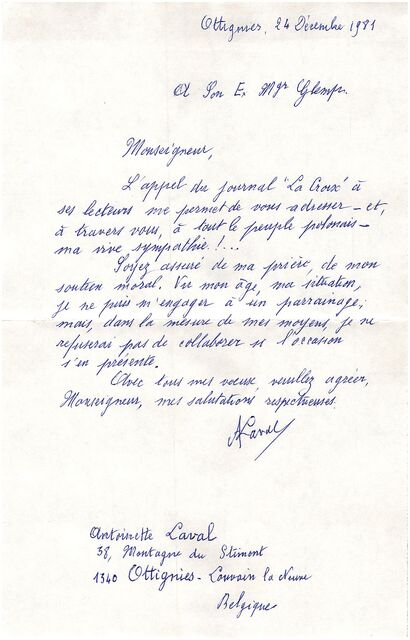 Ottignies, 24 Décembre 1981
A Son Ex Mgr Glemp.
Monseigneur,
L'appel du journal "La Croix" à
ses lecteurs me permet de vous adresser - et,
à travers vous, à tout le peuple polonais -
ma vive sympathie !...
Soyez assuré de ma prière, de mon
soutien moral. Vu mon âge, ma situation,
je ne puis m'engager à un parrainage;
mais, dans la mesure de mes moyens, je ne
refuserai pas de collaborer si l'occasion
s'en présente.
Avec tous mes voeux, veuillez agréer,
Monseigneur, mes salutations respectueuses.
ALaval
Antoinette Laval
38, Montagne du Stimont
1340 Ottignies - Louvain la Neuve
Belgique